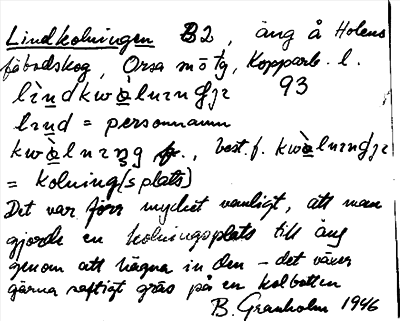 Lindkolningen B2, äng å Holens
fäbodskog, Orsa sn o tg, Kopparb. l.
lìndkwàlnıngɟɪ 93
lɪnd = personnamn
kwàlnɪng f., best. f. kwàlnıngɟɪ
= kolning(splats)
Det var förr mycket vanligt, att man
gjorde en kolningsplats till äng
genom att hägna in den – det växer
gärna saftigt gräs på en kolbotten
B. Granholm 1946